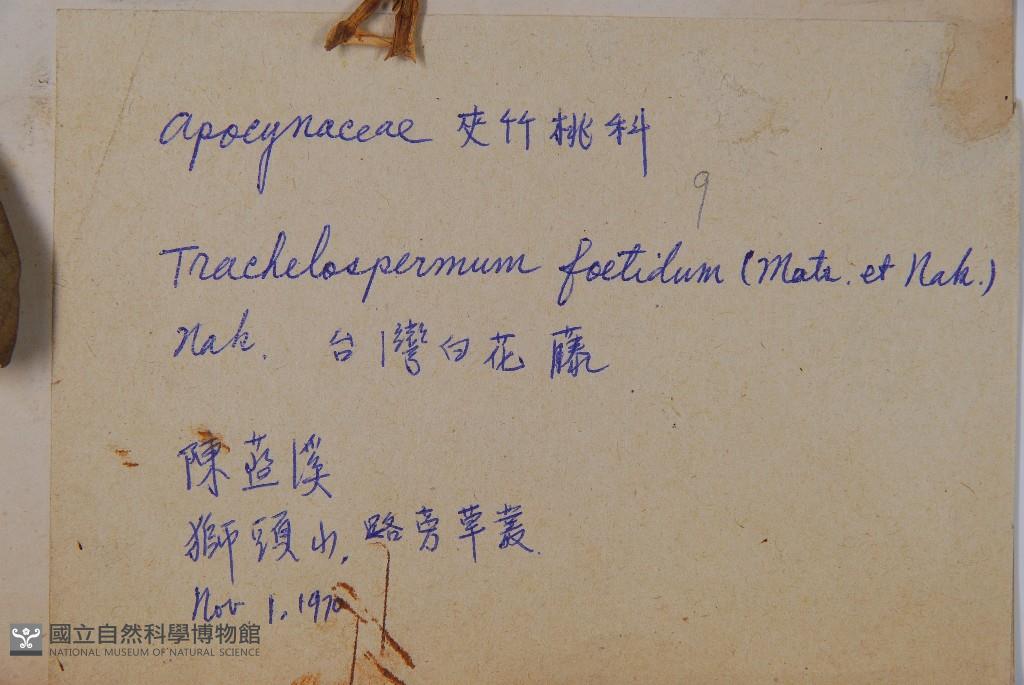 Apocynaceae 夾竹桃科
9
Trachelospermum foetidum (Mats. et Nak.)
Nak. 台灣白花藤
陳燕溪
獅頭山, 路旁草叢.
Nov 1, 1970
國立自然科學博物館
NATIONAL MUSEUM OF NATURAL SCIENCE